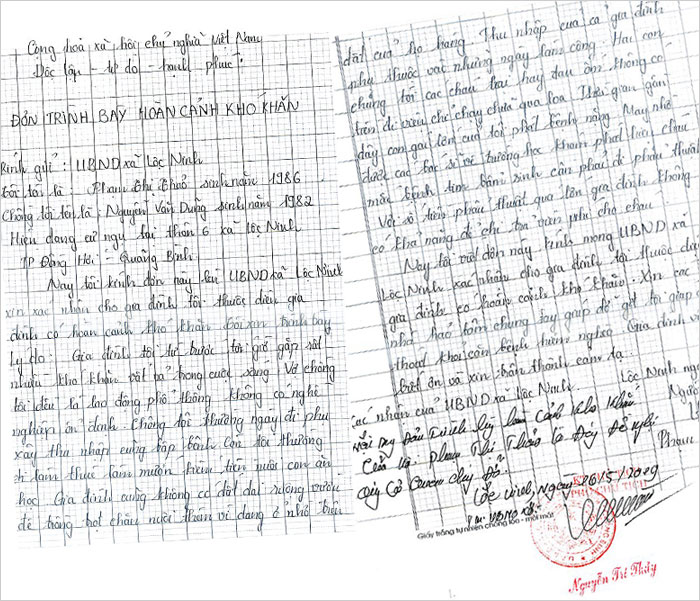 Cộng hoà xã hội chủ nghĩa Việt Nam
Độc lập - tự do - hạnh phúc.
ĐƠN TRÌNH BÀY HOÀN CẢNH KHÓ KHĂN
Kính gửi: UBND xã Lộc Ninh
Tôi tên là: Phạm Thị Thảo sinh năm 1986
Chồng tôi tên là Nguyễn Văn Dụng sinh năm 1982
Hiện đang cư ngụ tại thôn 6 xã Lộc Ninh
TP Đồng Hới - Quảng Bình
Nay tôi kính đơn này lên UBND xã Lộc Ninh
xin xác nhận cho gia đình tôi thuộc diện gia
đình có hoàn cảnh khó khăn. Tôi xin trình bày
lý do: Gia đình tôi từ trước tới giờ gặp rất
nhiều khó khăn vất vả trong cuộc sống. Vợ chồng
tôi đều là lao động phổ thông không có nghề
nghiệp ổn định. Chồng tôi thường ngày đi phụ
xây thu nhập cũng bấp bênh còn tôi thường
đi làm thuê làm mướn kiếm tiền nuôi con ăn
học. Gia đình cũng không có đất đai ruộng vườn
để trồng trọt chăn nuôi thêm vì đang ở nhờ trên
đất của họ hàng. Thu nhập của cả gia đình
phụ thuộc vào những ngày làm công. Hai con
chúng tôi các cháu hay đau ốm không có
tiền đi viện chỉ chạy chữa qua loa. Thời gian gần
đây con gái lớn của tôi phát bệnh nặng. May nhờ
được các bác sĩ về trường học khám phát hiện cháu
mắc bệnh tim bẩm sinh cần phải đi phẫu thuật
Với số tiền phẫu thuật quá lớn gia đình không
có khả năng để chi trả viện phí cho cháu
Nay tôi viết đơn này kính mong UBND xã
Lộc Ninh xác nhận cho gia đình tôi thuộc diện
gia đình có hoàn cảnh khó khăn. Xin các
nhà hảo tâm chung tay giúp đỡ gđ tôi giúp
thoát khỏi căn bệnh hiểm nghèo. Gia đình
biết ơn và xin chân thành cảm ơn.
Xác nhận của UBND xã Lộc Ninh. Lộc Ninh ngà
Người
Phạm
Trình bày hoàn cảnh khó khăn
của bà Phạm Thị Thảo là đúng đề nghị
quý cơ quan giúp đỡ.
Lộc Ninh, Ngày 26/5/2019
TM. UBND xã
Giấy trắng tự nhiên chống lóa - mỏi mắt
Nguyễn Trí Thủy